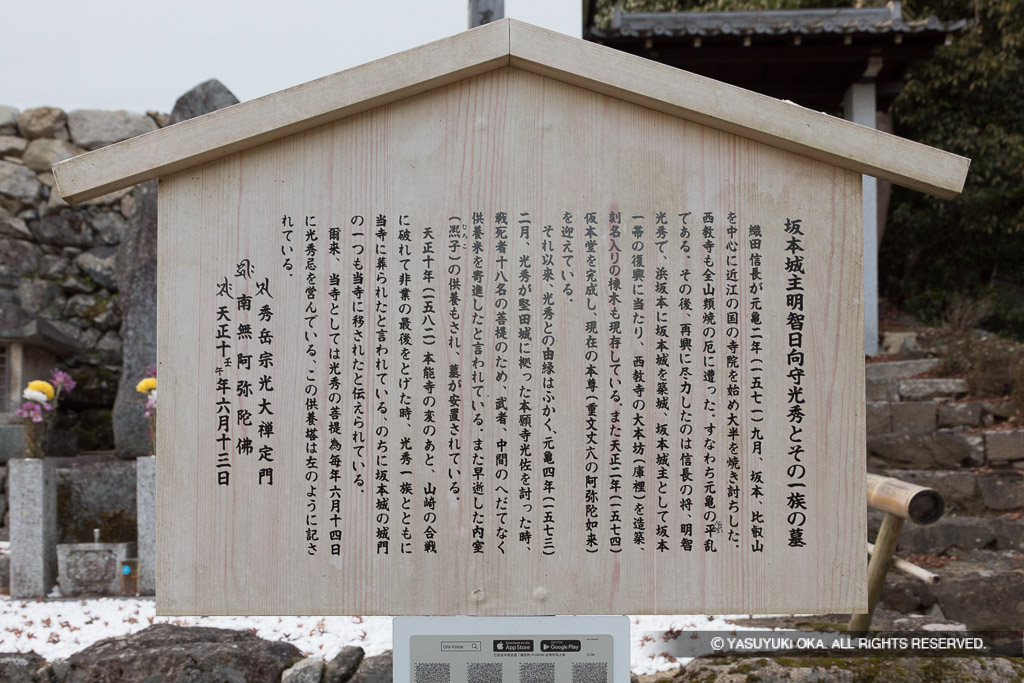 坂本城主明智日向守光秀とその一族の墓
織田信長が元亀二年(一五七一)九月、坂本、比叡山
を中心に近江の国の寺院を始め大半を焼き討ちした。
西教寺も全山類焼の厄に遭った。すなわち元亀の平乱
である。その後、再興に尽力したのは信長の将、明智
光秀で、浜坂本に坂本城を築城、坂本城主として坂本
一帯の復興に当たり、西教寺の大本坊(庫裡)を造築、
刻名入りの棟木も現存している。また天正二年(一五七四)
仮本堂を完成し、現在の本尊(重文丈六の阿弥陀如来)
を迎えている。
それ以来、光秀との由縁はふかく、元亀四年(一五七三)
二月、光秀が堅田城に拠った本願寺光佐を討った時、
戦死者十八名の菩提のため、武者、中間のへだてなく
供養米を寄進したと言われている。また早逝した内室
(熙子)の供養もされ、墓が安置されている。
ひろこ
天正十年(一五八二)本能寺の変のあと、山崎の合戦
に破れて非業の最後をとげた時、光秀一族とともに
当寺に葬られたと言われている、のちに坂本城の城門
の一つも当寺に移されたと伝えられている。
爾来、当寺としては光秀の菩提為毎年六月十四日
に光秀忌を営んでいる、この供養塔は左のように記さ
れている。
秀岳宗光大禅定門
南無阿弥陀佛
天正十壬午年六月十三日
Uni-Voice
App Store
Google Play
© YASUYUKI OKA. ALL RIGHTS RESERVED.